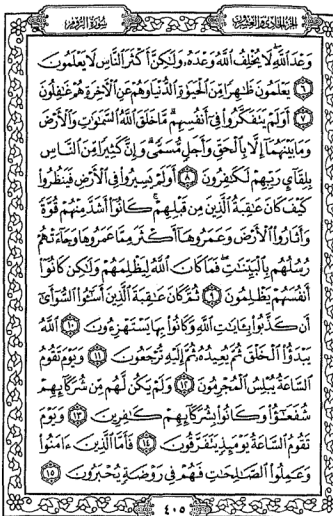 الجزء الحادي والعشرون سورة الروم
وَعْدَ اللَّهِ لَا يُخْلِفُ اللَّهُ وَعْدَهُ وَلَٰكِنَّ أَكْثَرَ النَّاسِ لَا يَعْلَمُونَ
٦ يَعْلَمُونَ ظَاهِرًا مِّنَ الْحَيَوٰةِ الدُّنْيَا وَهُمْ عَنِ الْآخِرَةِ هُمْ غَافِلُونَ
٧ أَوَلَمْ يَتَفَكَّرُوا فِي أَنفُسِهِم مَّا خَلَقَ اللَّهُ السَّمَٰوَٰتِ وَالْأَرْضَ
وَمَا بَيْنَهُمَا إِلَّا بِالْحَقِّ وَأَجَلٍ مُّسَمًّى وَإِنَّ كَثِيرًا مِّنَ النَّاسِ
بِلِقَآئِ رَبِّهِمْ لَكَٰفِرُونَ ٨ أَوَلَمْ يَسِيرُوا فِي الْأَرْضِ فَيَنظُرُوا
كَيْفَ كَانَ عَٰقِبَةُ الَّذِينَ مِن قَبْلِهِمْ كَانُوا أَشَدَّ مِنْهُمْ قُوَّةً
وَأَثَارُوا الْأَرْضَ وَعَمَرُوهَا أَكْثَرَ مِمَّا عَمَرُوهَا وَجَآءَتْهُمْ
رُسُلُهُم بِالْبَيِّنَٰتِ فَمَا كَانَ اللَّهُ لِيَظْلِمَهُمْ وَلَٰكِن كَانُوا
أَنفُسَهُمْ يَظْلِمُونَ ٩ ثُمَّ كَانَ عَٰقِبَةَ الَّذِينَ أَسَٰٓـُٔوا السُّوٓأَىٰٓ
أَن كَذَّبُوا بِـَٔايَٰتِ اللَّهِ وَكَانُوا بِهَا يَسْتَهْزِءُونَ ١٠ اللَّهُ
يَبْدَؤُا الْخَلْقَ ثُمَّ يُعِيدُهُ ثُمَّ إِلَيْهِ تُرْجَعُونَ ١١ وَيَوْمَ تَقُومُ
السَّاعَةُ يُبْلِسُ الْمُجْرِمُونَ ١٢ وَلَمْ يَكُن لَّهُم مِّن شُرَكَآئِهِمْ
شُفَعَٰٓؤُا وَكَانُوا بِشُرَكَآئِهِمْ كَٰفِرِينَ ١٣ وَيَوْمَ
تَقُومُ السَّاعَةُ يَوْمَئِذٍ يَتَفَرَّقُونَ ١٤ فَأَمَّا الَّذِينَ ءَامَنُوا
وَعَمِلُوا الصَّٰلِحَٰتِ فَهُمْ فِي رَوْضَةٍ يُحْبَرُونَ ١٥
٤٠٥